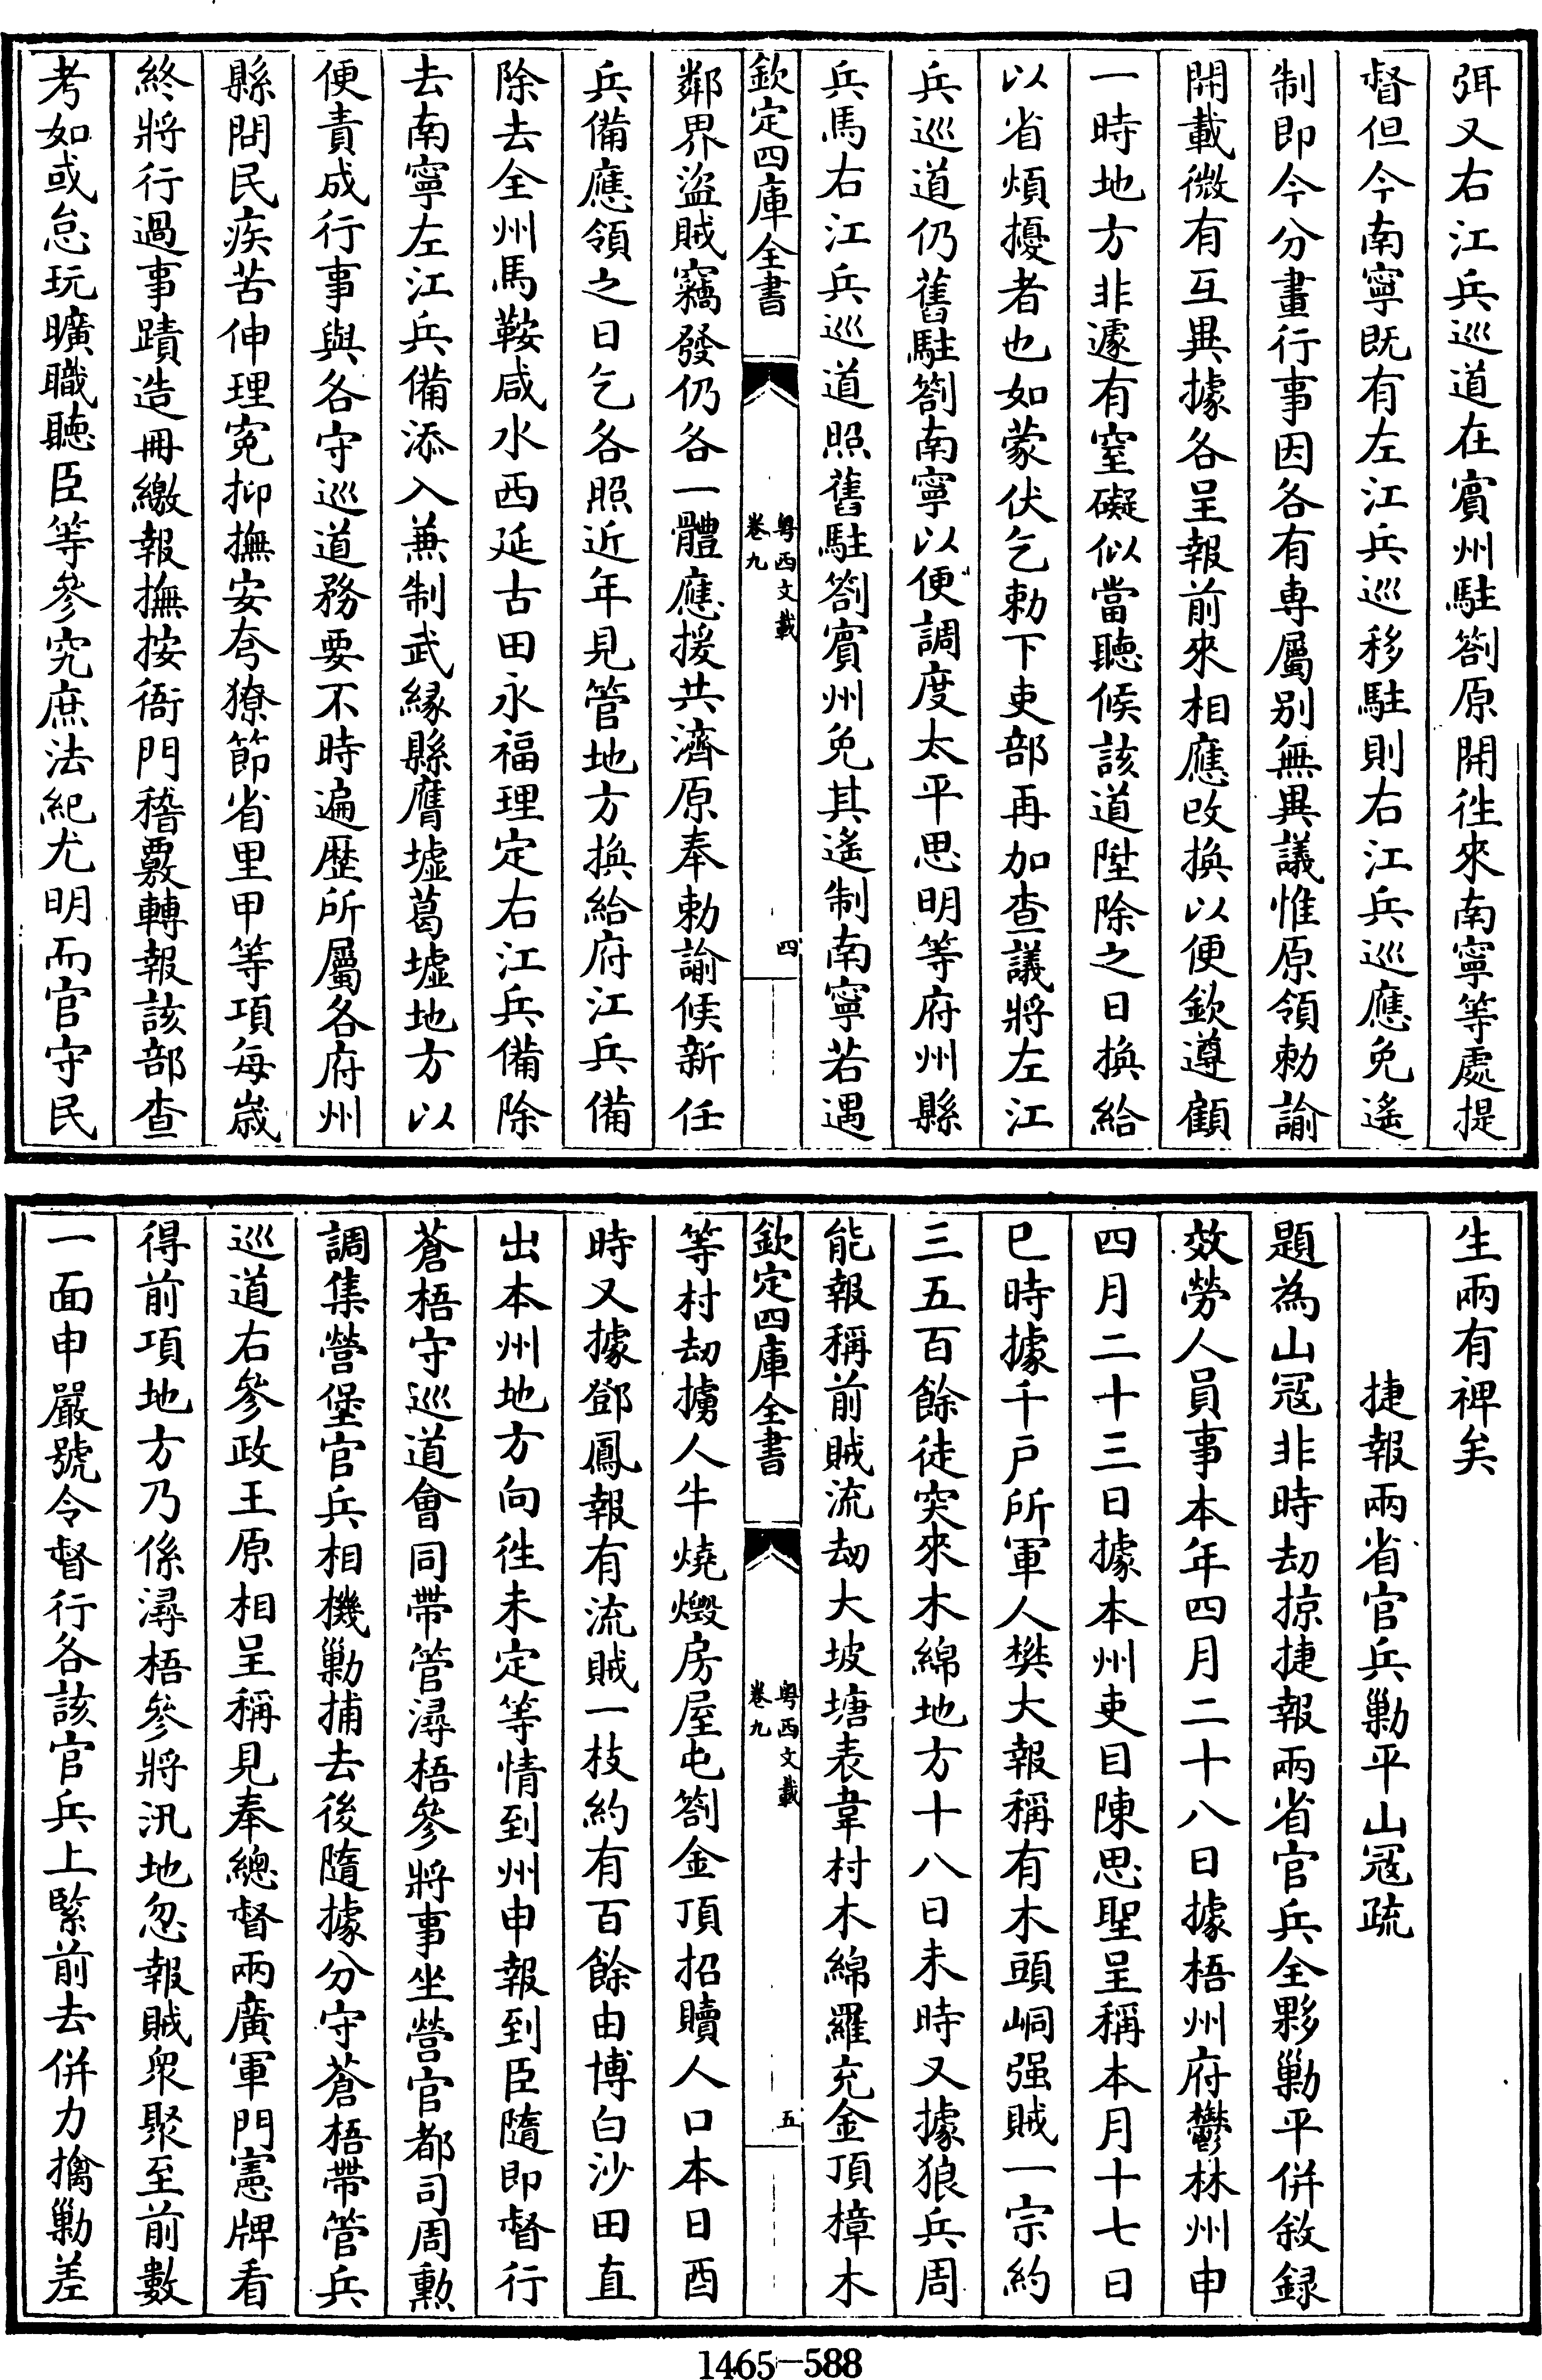 弭又右江兵巡道在賔州駐劄原開徃來南寧等處提
督但今南寧既有左江兵巡移駐則右江兵巡應免遙
制即今分畫行事因各有専屬别無異議惟原領勅諭
開載微有互異據各呈報前來相應改換以便欽遵顧
一時地方非遽有窒礙似當聽候該道陞除之日換給
以省煩擾者也如蒙伏乞勅下吏部再加查議將左江
兵巡道仍舊駐劄南寧以便調度太平思明等府州縣
兵馬右江兵巡道照舊駐劄賔州免其遙制南寧若遇
欽定四庫全書
粤西文載
卷九
四
鄰界盜賊竊發仍各一體應援共濟原奉勅諭候新任
兵備應領之日乞各照近年見管地方換給府江兵備
除去全州馬鞍咸水西延古田永福理定右江兵備除
去南寧左江兵備添入兼制武緣縣膺墟葛墟地方以
便責成行事與各守巡道務要不時遍歷所屬各府州
縣問民疾苦伸理寃抑撫安夸獠節省里甲等項每歲
終將行過事蹟造冊繳報撫按衙門稽覈轉報該部查
考如或怠玩曠職聽臣等參究庶法紀尤明而官守民
生兩有裨矣
捷報兩省官兵勦平山冦疏
題為山冦非時劫掠捷報兩省官兵全夥勦平併敘録
效勞人員事本年四月二十八日據梧州府鬱林州申
四月二十三日據本州吏目陳思聖呈稱本月十七日
巳時據千戶所軍人樊大報稱有木頭峒强賊一宗約
三五百餘徒突來木綿地方十八日未時又據狼兵周
能報稱前賊流劫大坡塘表韋村木綿羅充金頂樟木
欽定四庫全書
粤西文載
卷九
五
等村劫擄人牛燒燬房屋屯劄金頂招贖人口本日酉
時又據鄧鳳報有流賊一枝約有百餘由博白沙田直
出本州地方向徃未定等情到州申報到臣隨即督行
蒼梧守巡道會同帶管潯梧參將事坐營官都司周勲
調集營堡官兵相機勦捕去後隨據分守蒼梧帶管兵
巡道右參政王原相呈稱見奉總督兩廣軍門憲牌看
得前項地方乃係潯梧參將汛地忽報賊衆聚至前數
一面申嚴號令督行各該官兵上緊前去併力擒勦差
1465—588